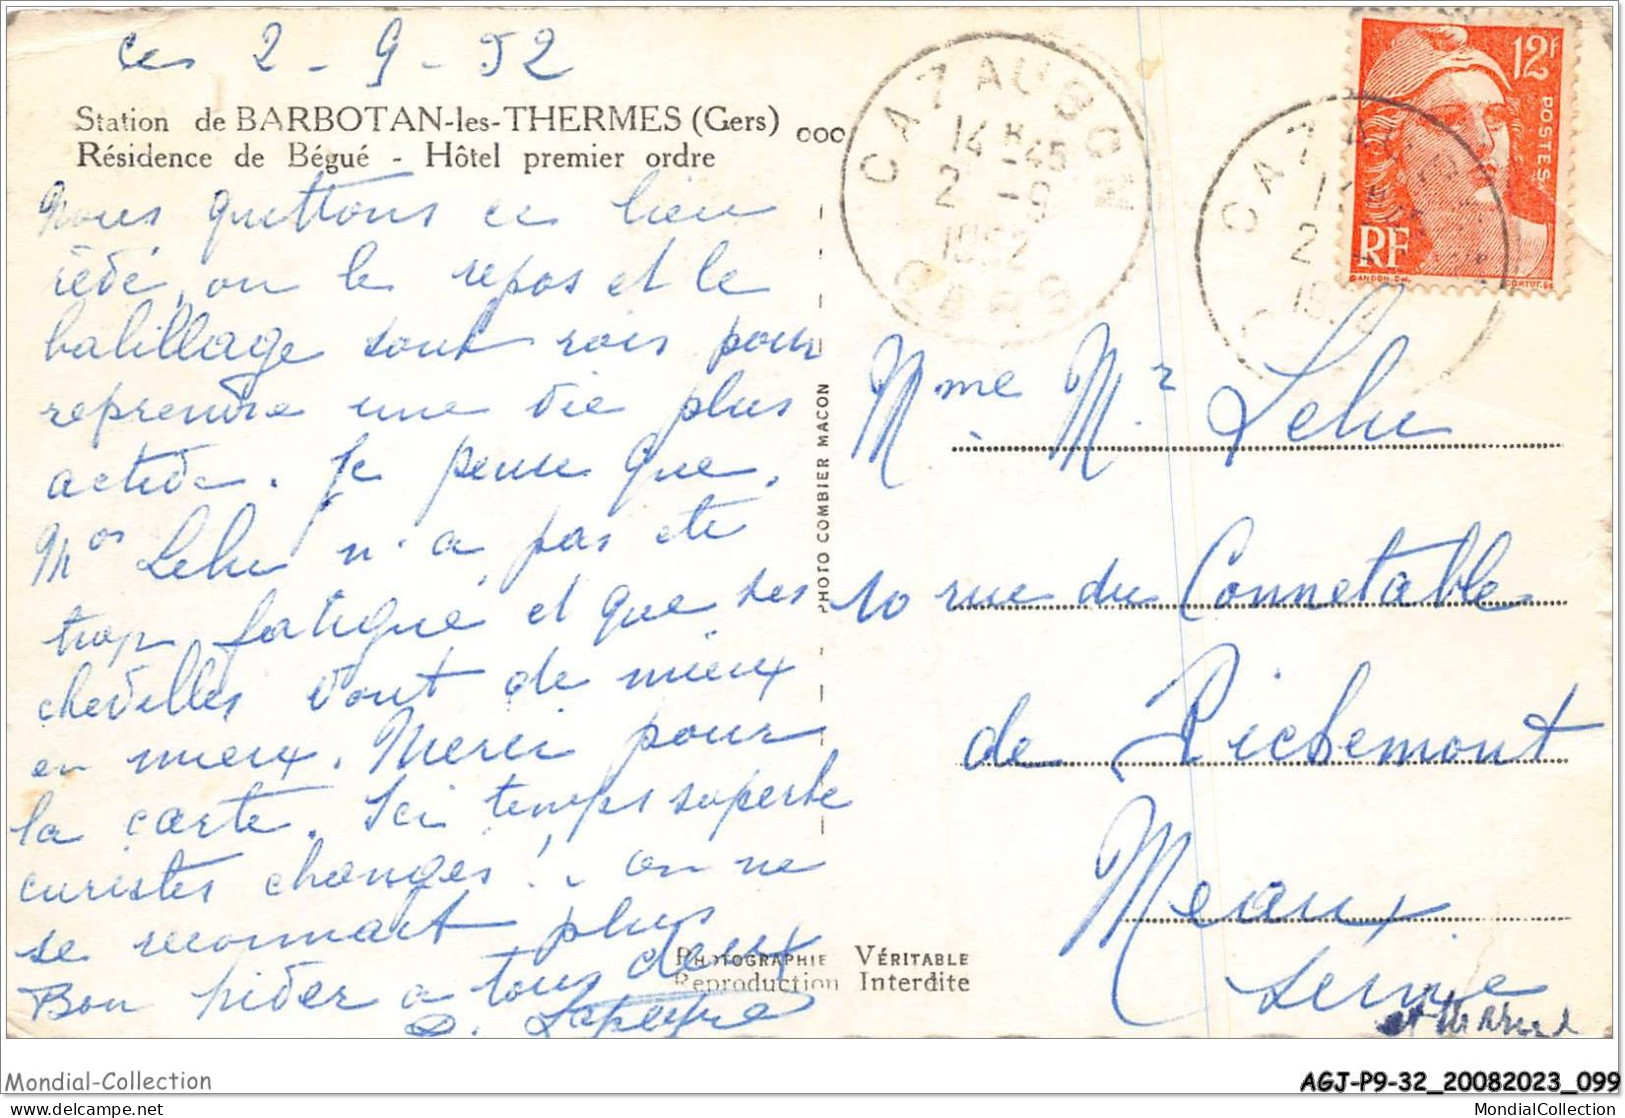 ce 2-9-52
Station de BARBOTAN-les-THERMES (Gers)
Résidence de Bégué - Hôtel premier ordre
Nous quittons ce lieu
rêvé, ou le repos et le
babillage sont rois pour
reprendre une vie plus
active. Je pense que
Lehu n'a pas été
trop fatigué et que ses
chevilles vont de mieux
en mieux. Merci pour
la carte. Ici temps superbe
curistes changés! on ne
se reconnait plus
Bon hiver a tous deux
CAZAUBON
14 H 45
2 -9
1952
GERS
CAZAUBON
2
12F
POSTES
RF
GANDON
CORTOT
PHOTO COMBIER MACON
Mme Mr Lehu
10 rue du Connetable
de Richemont
Meaux
Seine et Marne
PHOTOGRAPHIE VÉRITABLE
Reproduction Interdite
Mondial-Collection
AGJ-P9-32_20082023_099
delcampe.net
MondialCollection